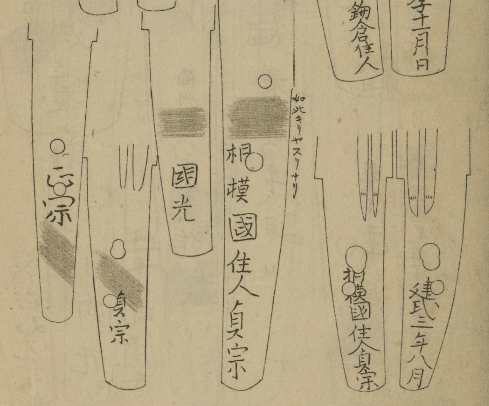 十一月日
鎌倉住人
建武三年八月
相模國住人貞宗
如此キリヤスリナリ
相模國住人貞宗
國光
貞宗
正宗